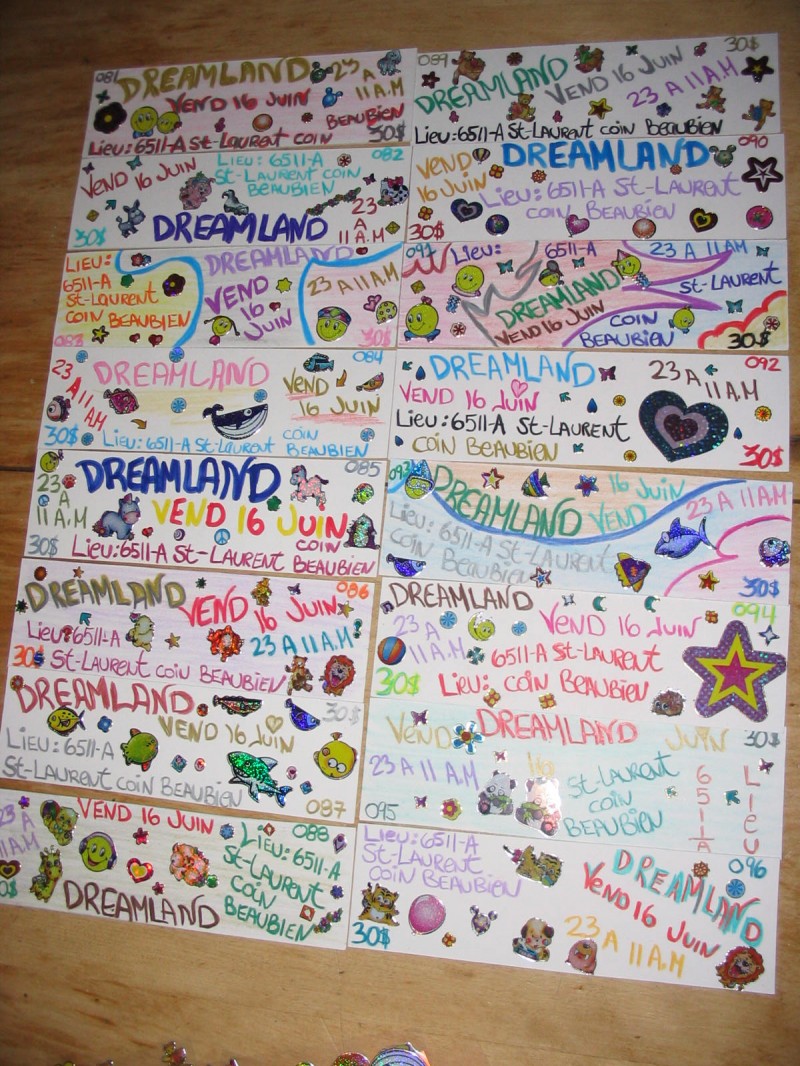 081 DREAMLAND 23 A 11 A.M
VEND 16 JUIN
BEAUBIEN
Lieu: 6511-A St-LAURENT COIN 30$
VEND 16 JUIN Lieu: 6511-A 082
St-LAURENT COIN
BEAUBIEN
30$ DREAMLAND 23 A 11 A.M
Lieu: DREAMLAND
6511-A VEND 23 A 11 A.M
St-LAURENT 16
COIN BEAUBIEN JUIN
083 30$
23 A 11 A.M DREAMLAND 084
VEND
16 JUIN
30$ Lieu: 6511-A St-LAURENT COIN
BEAUBIEN
DREAMLAND 085
23 A 11 A.M VEND 16 JUIN
COIN
30$ Lieu: 6511-A St-LAURENT BEAUBIEN
DREAMLAND VEND 16 JUIN 086
Lieu: 6511-A 23 A 11 A.M
30$ St-LAURENT COIN BEAUBIEN
DREAMLAND 30$
VEND 16 JUIN
Lieu: 6511-A
St-LAURENT COIN BEAUBIEN 087
23 A 11 A.M VEND 16 JUIN 088
Lieu: 6511-A
St-LAURENT
COIN
DREAMLAND BEAUBIEN
089 30$
DREAMLAND VEND 16 JUIN
23 A 11 A.M
Lieu: 6511-A St-LAURENT COIN BEAUBIEN
VEND DREAMLAND 090
16 JUIN Lieu: 6511-A St-LAURENT
30$ COIN BEAUBIEN
091 Lieu: 6511-A 23 A 11 AM
DREAMLAND St-LAURENT
VEND 16 JUIN COIN
BEAUBIEN 30$
DREAMLAND 092
VEND 16 JUIN 23 A 11 A.M
Lieu: 6511-A St-LAURENT
COIN BEAUBIEN 30$
093 DREAMLAND 16 JUIN
VEND 23 A 11 A.M
Lieu: 6511-A St-LAURENT
COIN BEAUBIEN 30$
DREAMLAND 094
23 A 11 A.M VEND 16 JUIN
6511-A St-LAURENT
30$ Lieu: COIN BEAUBIEN
VEND DREAMLAND JUIN 30$
16
23 A 11 A.M St-LAURENT 6511-A Lieu
COIN
095 BEAUBIEN
Lieu: 6511-A 096
St-LAURENT DREAMLAND
COIN BEAUBIEN VEND 16 JUIN
30$ 23 A 11 A.M